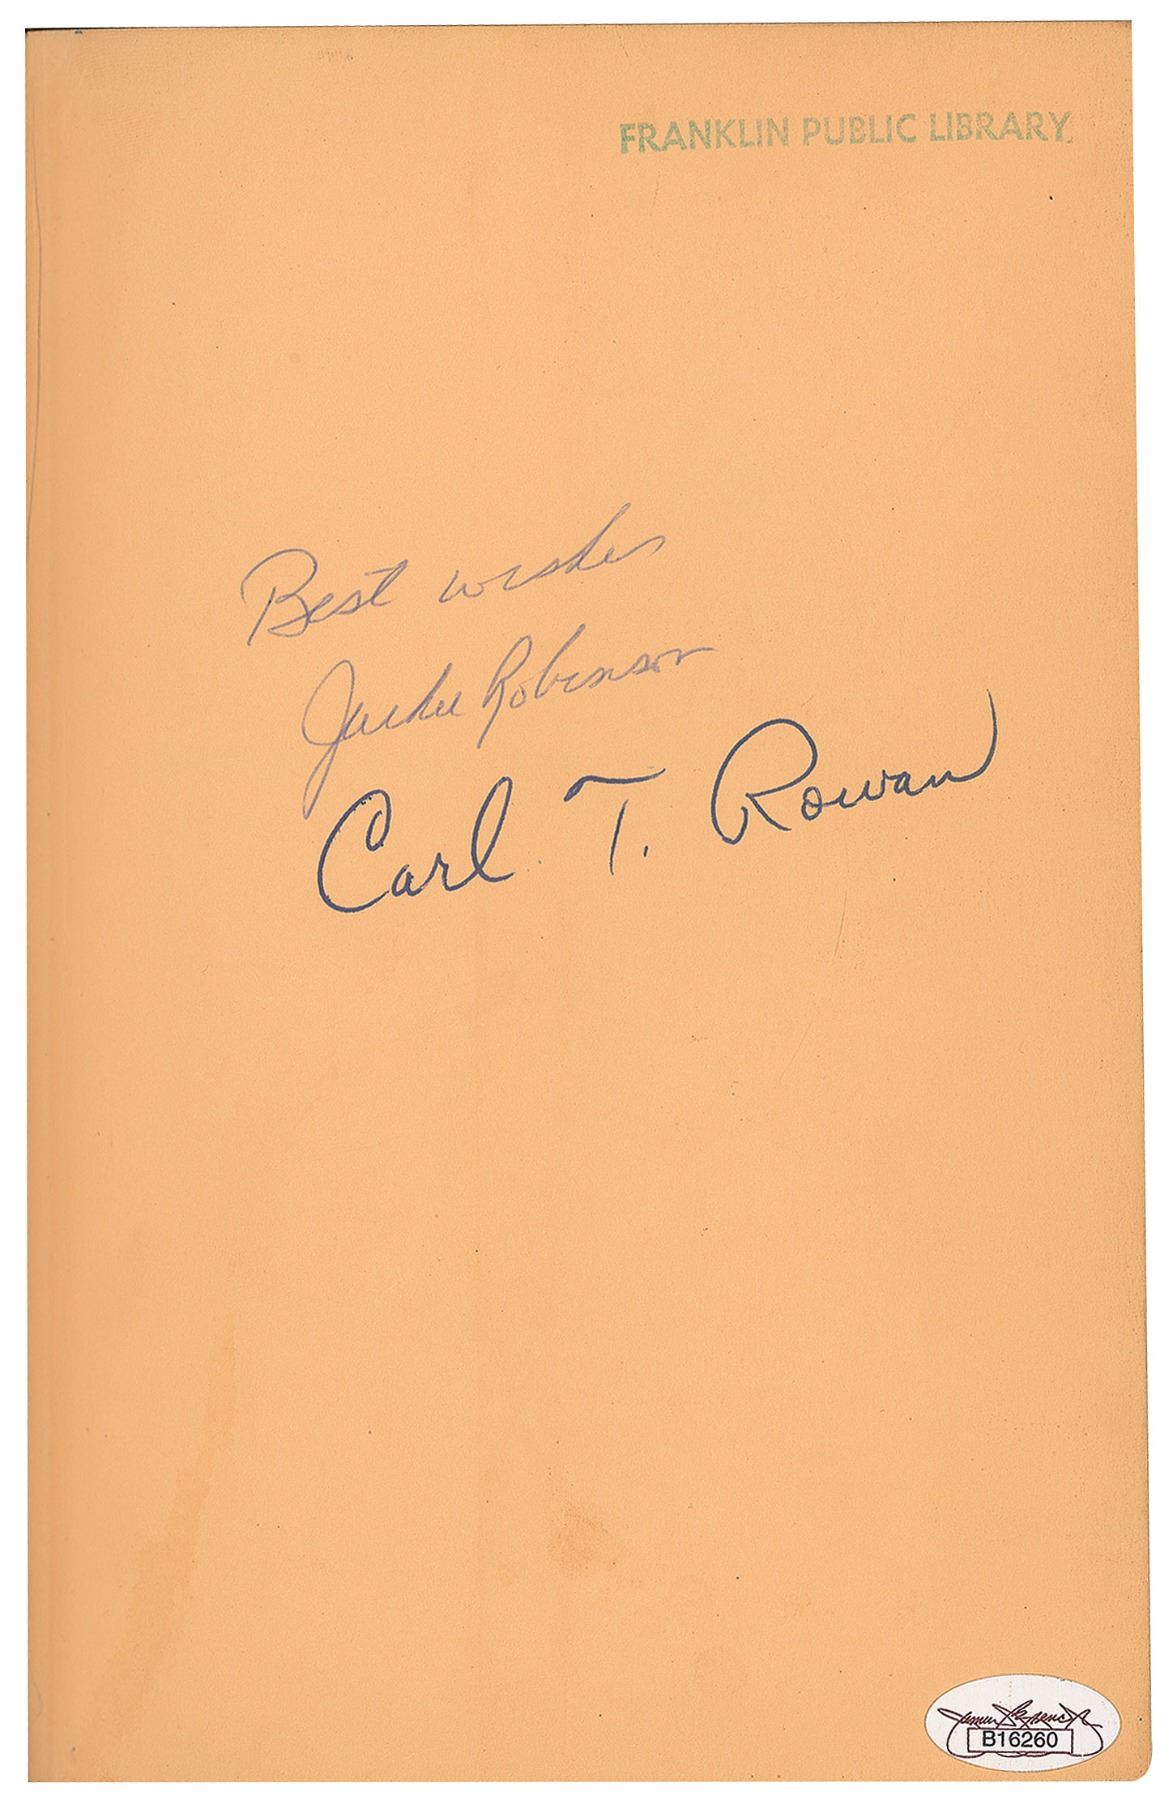 FRANKLIN PUBLIC LIBRARY
Best wishes
Jackie Robinson
Carl T. Rowan
James Spence Jr
B16260